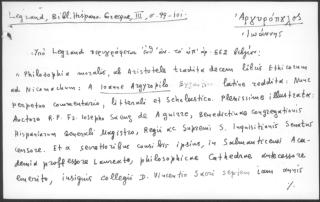 Legrand, Bibl. Hispano Grecque, III, σ. 99-101.
Ἀργυρόπουλος
Ἰωάννης
Ὑπὸ Legrand περιγράφεται ὑπ' ἀρ. 662 βιβλίον:
« Philosophia moralis, ab Aristotele tradita decem libris Ethicorum
ad Nicomachum: A Ioanne Argyropilo latine reddita. Nunc
perpetuo commentario, litterali et Scholastico. Plenissime illustrata:
Auctore R.P. Fr. Iosepho Saenz de Aguirre, Benedictinae Congregationis
Hispaniarum Generali Magistro, Regii ac Supremi S. Inquisitionis Senatus
Censore. Et a secretioribus consiliis ipsius, in Salmanticensi Aca-
demia proffessore Laureato, philosophicae Cathedrae antecessore
emerito, insignis collegii D. Vincentio Sacri septem iam annis